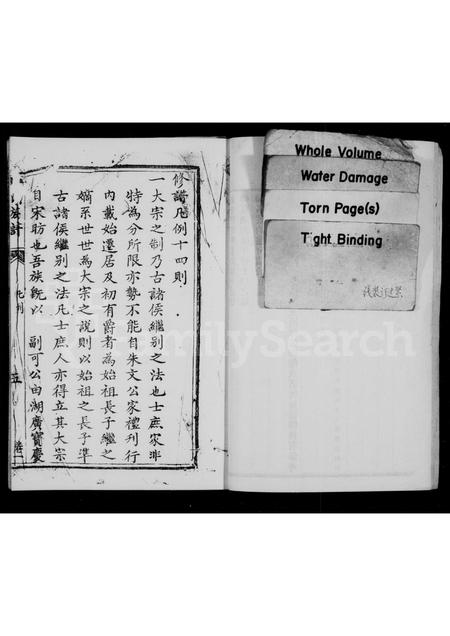 修譜凡例十四則
一大宗之制乃古諸侯繼别之法也士庶家非
特為分所限亦勢不能自朱文公家禮刋行
內載始遷居及初有爵者為始祖長子繼之
嫡系世世為大宗之說則以始祖之長子準
古諸侯繼别之法凡士庶人亦得立其大宗
自宋昉也吾族既以 副可公由湖廣寶慶
凡例
五
卷一
Whole Volume
Water Damage
Torn Page(s)
Tight Binding
FamilySearch